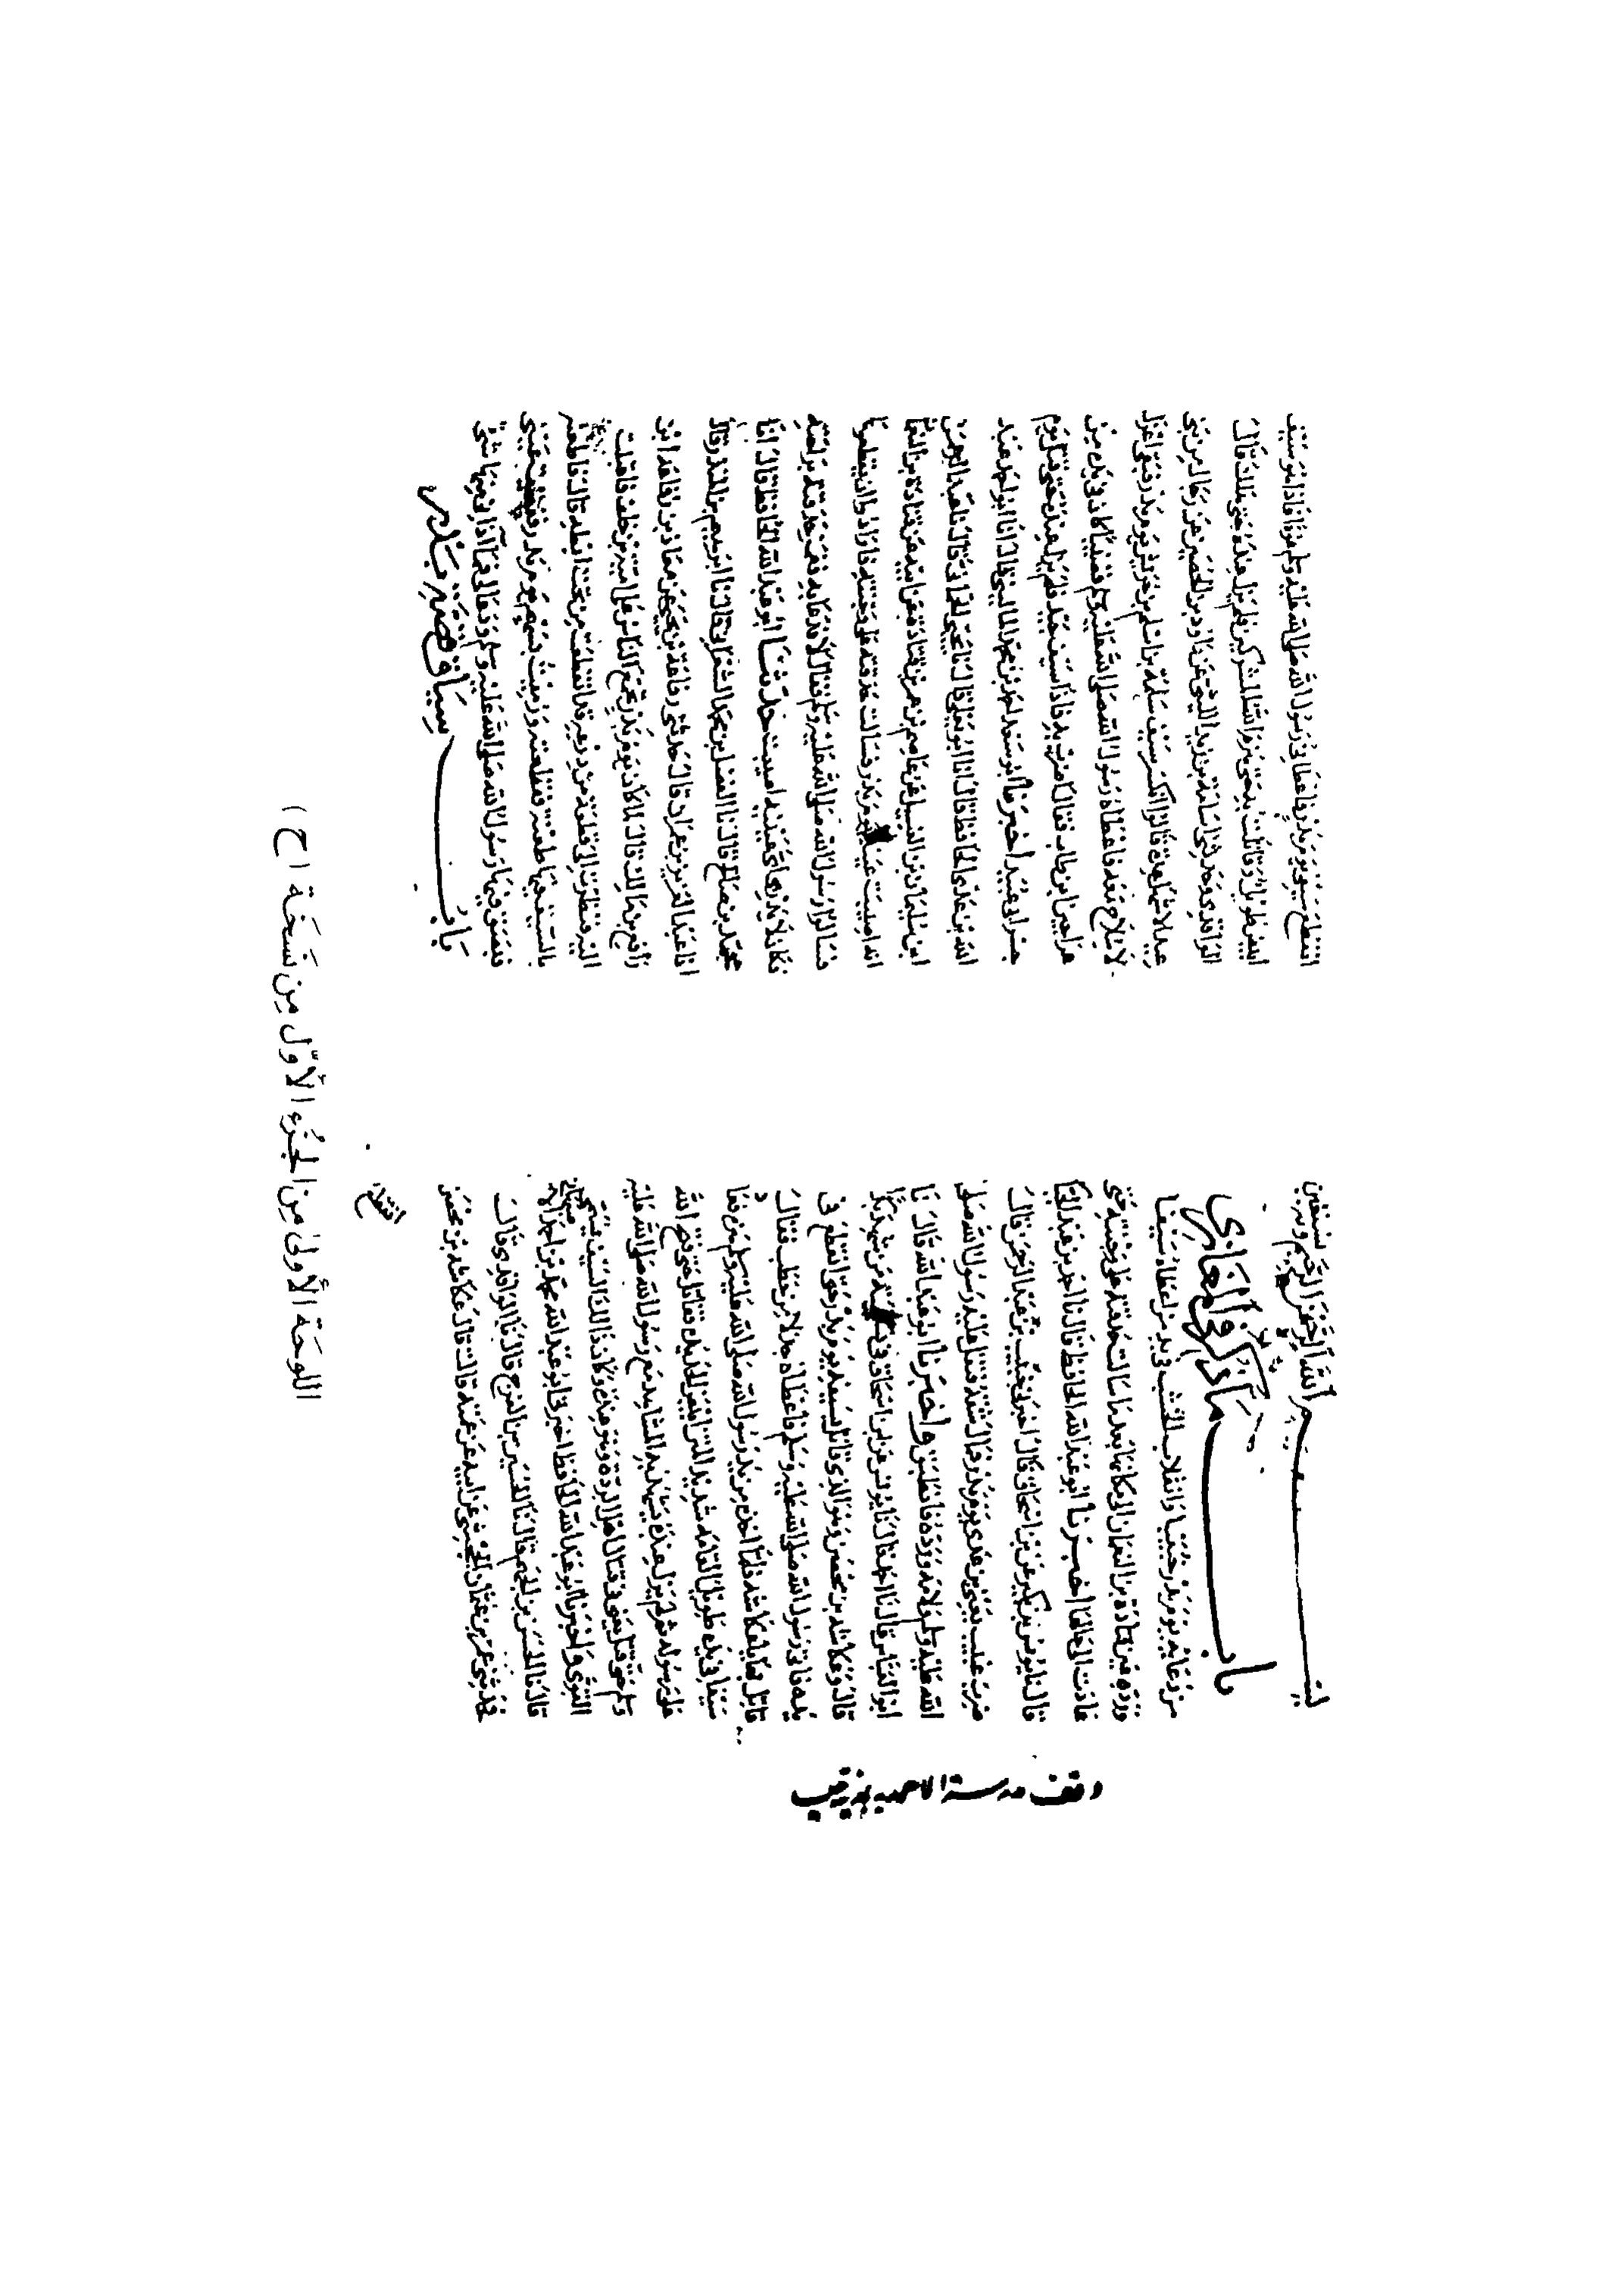 بسم الله الرحمن الرحيم وبه نستعين
باب ما ذكر في المغازي
من دعائه يوم بدر خبيبا وانقلاب الخشب في يد من اعطاه سيفا
ورده عين قتادة بن النعمان الى مكانها بعد ما سالت حدقته على وجنته حتى
عادت الى حالها اخبرنا ابو عبد الله الحافظ قال نا احمد بن عبد الجبار
قال نا يونس بن بكير عن ابن اسحاق قال اخبرني خبيب بن عبد الرحمن قال
ضرب خبيب بن عدي يوم بدر فمال شقه فتفل عليه رسول الله صلى
الله عليه وسلم ولامه ورده فانطبق واخبرنا ابو عبد الله قال نا
ابو العباس قال نا احمد قال نا يونس عن ابن اسحاق في
قال وعكاشة بن محصن وهو الذي قاتل بسيفه يوم بدر حتى انقطع في
يده فاتى رسول الله صلى الله عليه وسلم فاعطاه جذلا من حطب فقال
قاتل بهذا يا عكاشة فلما اخذه من يد رسول الله صلى الله عليه وسلم هزه فعاد
سيفا في يده طويل القامة شديد المتن ابيض الحديدة فقاتل حتى فتح الله
على رسوله ثم لم يزل عنده يشهد به المشاهد مع رسول الله صلى الله عليه
وسلم حتى قتل يعني في قتال اهل الردة وهو عنده وكان ذلك السيف يسمى
القوي واخبرنا ابو عبد الله الحافظ اخبرنا ابو عبد الله محمد بن احمد
قال نا الحسن بن الجهم قال نا الحسين بن الفرج قال نا الواقدي قال
حدثني عمر بن عثمان الجحشي عن ابيه عن عمته قالت قال عكاشة بن محصن
انقطع
انقطع سيفي يوم بدر فاعطاني رسول الله صلى الله عليه وسلم عودا فاذا هو سيف
ابيض طويل وقاتلت به حتى هزم الله المشركين فلم يزل عنده حتى هلك قال
الواقدي وحدثني اسامة بن زيد الليثي عن داود بن الحصين عن رجال من بني
عبد الاشهل عدة قالوا انكسر سيف سلمة بن اسلم بن حريش يوم بدر فبقي اعزل
لا سلاح معه فاعطاه رسول الله صلى الله عليه وسلم قضيبا كان في يده من
عراجين ابن طاب فقال اضرب به فاذا سيف جيد فلم يزل عنده حتى قتل يوم
جسر ابي عبيد اخبرنا ابو سعد احمد بن محمد الماليني قال انا ابو احمد عبد
الله بن عدي الحافظ قال انا ابو يعلى قال نا يحيى الحماني قال نا عبد الرحمن
ابن سليمان بن الغسيل عن عاصم بن عمر بن قتادة عن ابيه عن قتادة بن النعمان
انه اصيبت عينه يوم بدر فسالت حدقته على وجنته فارادوا ان يقطعوها
فسالوا رسول الله صلى الله عليه وسلم فقال لا فدعا به فغمز حدقته براحته
فكان لا يدري اي عينيه اصيبت حدثنا ابو عبد الله الحافظ قال انا
محمد بن صالح قال نا الفضل بن محمد الشعراني قال نا ابراهيم بن المنذر قال
انا عبد العزيز بن عمران قال حدثني رفاعة بن يحيى عن معاذ بن رفاعة بن
رافع بن مالك قال لما كان يوم بدر تجمع الناس على امية بن خلف فاقبلت
اليه فنظرت الى قطعة من درعه قد انقطعت من تحت ابطه قال فاطعنه
بالسيف فيها طعنة فقتلته ورميت بسهم يوم بدر ففقئت عيني
فبصق فيها رسول الله صلى الله عليه وسلم ودعا لي فما آذاني منها شيء
باب سياق قصة بدر
وقف مدرسة الاحمدية
اللوحة الأولى من الجزء الأول من نسخة (ح)